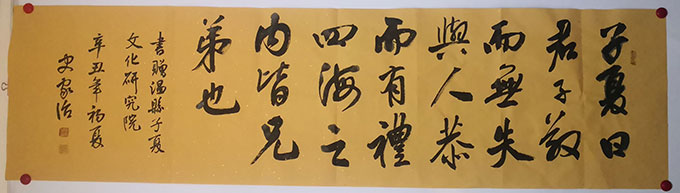 子夏曰
君子敬
而無失
與人恭
而有禮
四海之
内皆兄
弟也
書贈温縣子夏
文化研究院
辛丑年初夏
史家治